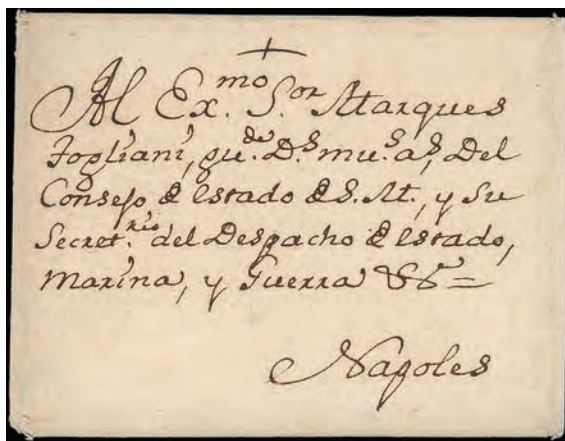 +
Al Ex.mo S.or Marques
Fogliani, gu.de D.s mu.s a.s, Del
Consejo de Estado de S. M., y su
Secret.rio del Despacho de Estado,
Marina, y Guerra &.a =
Napoles